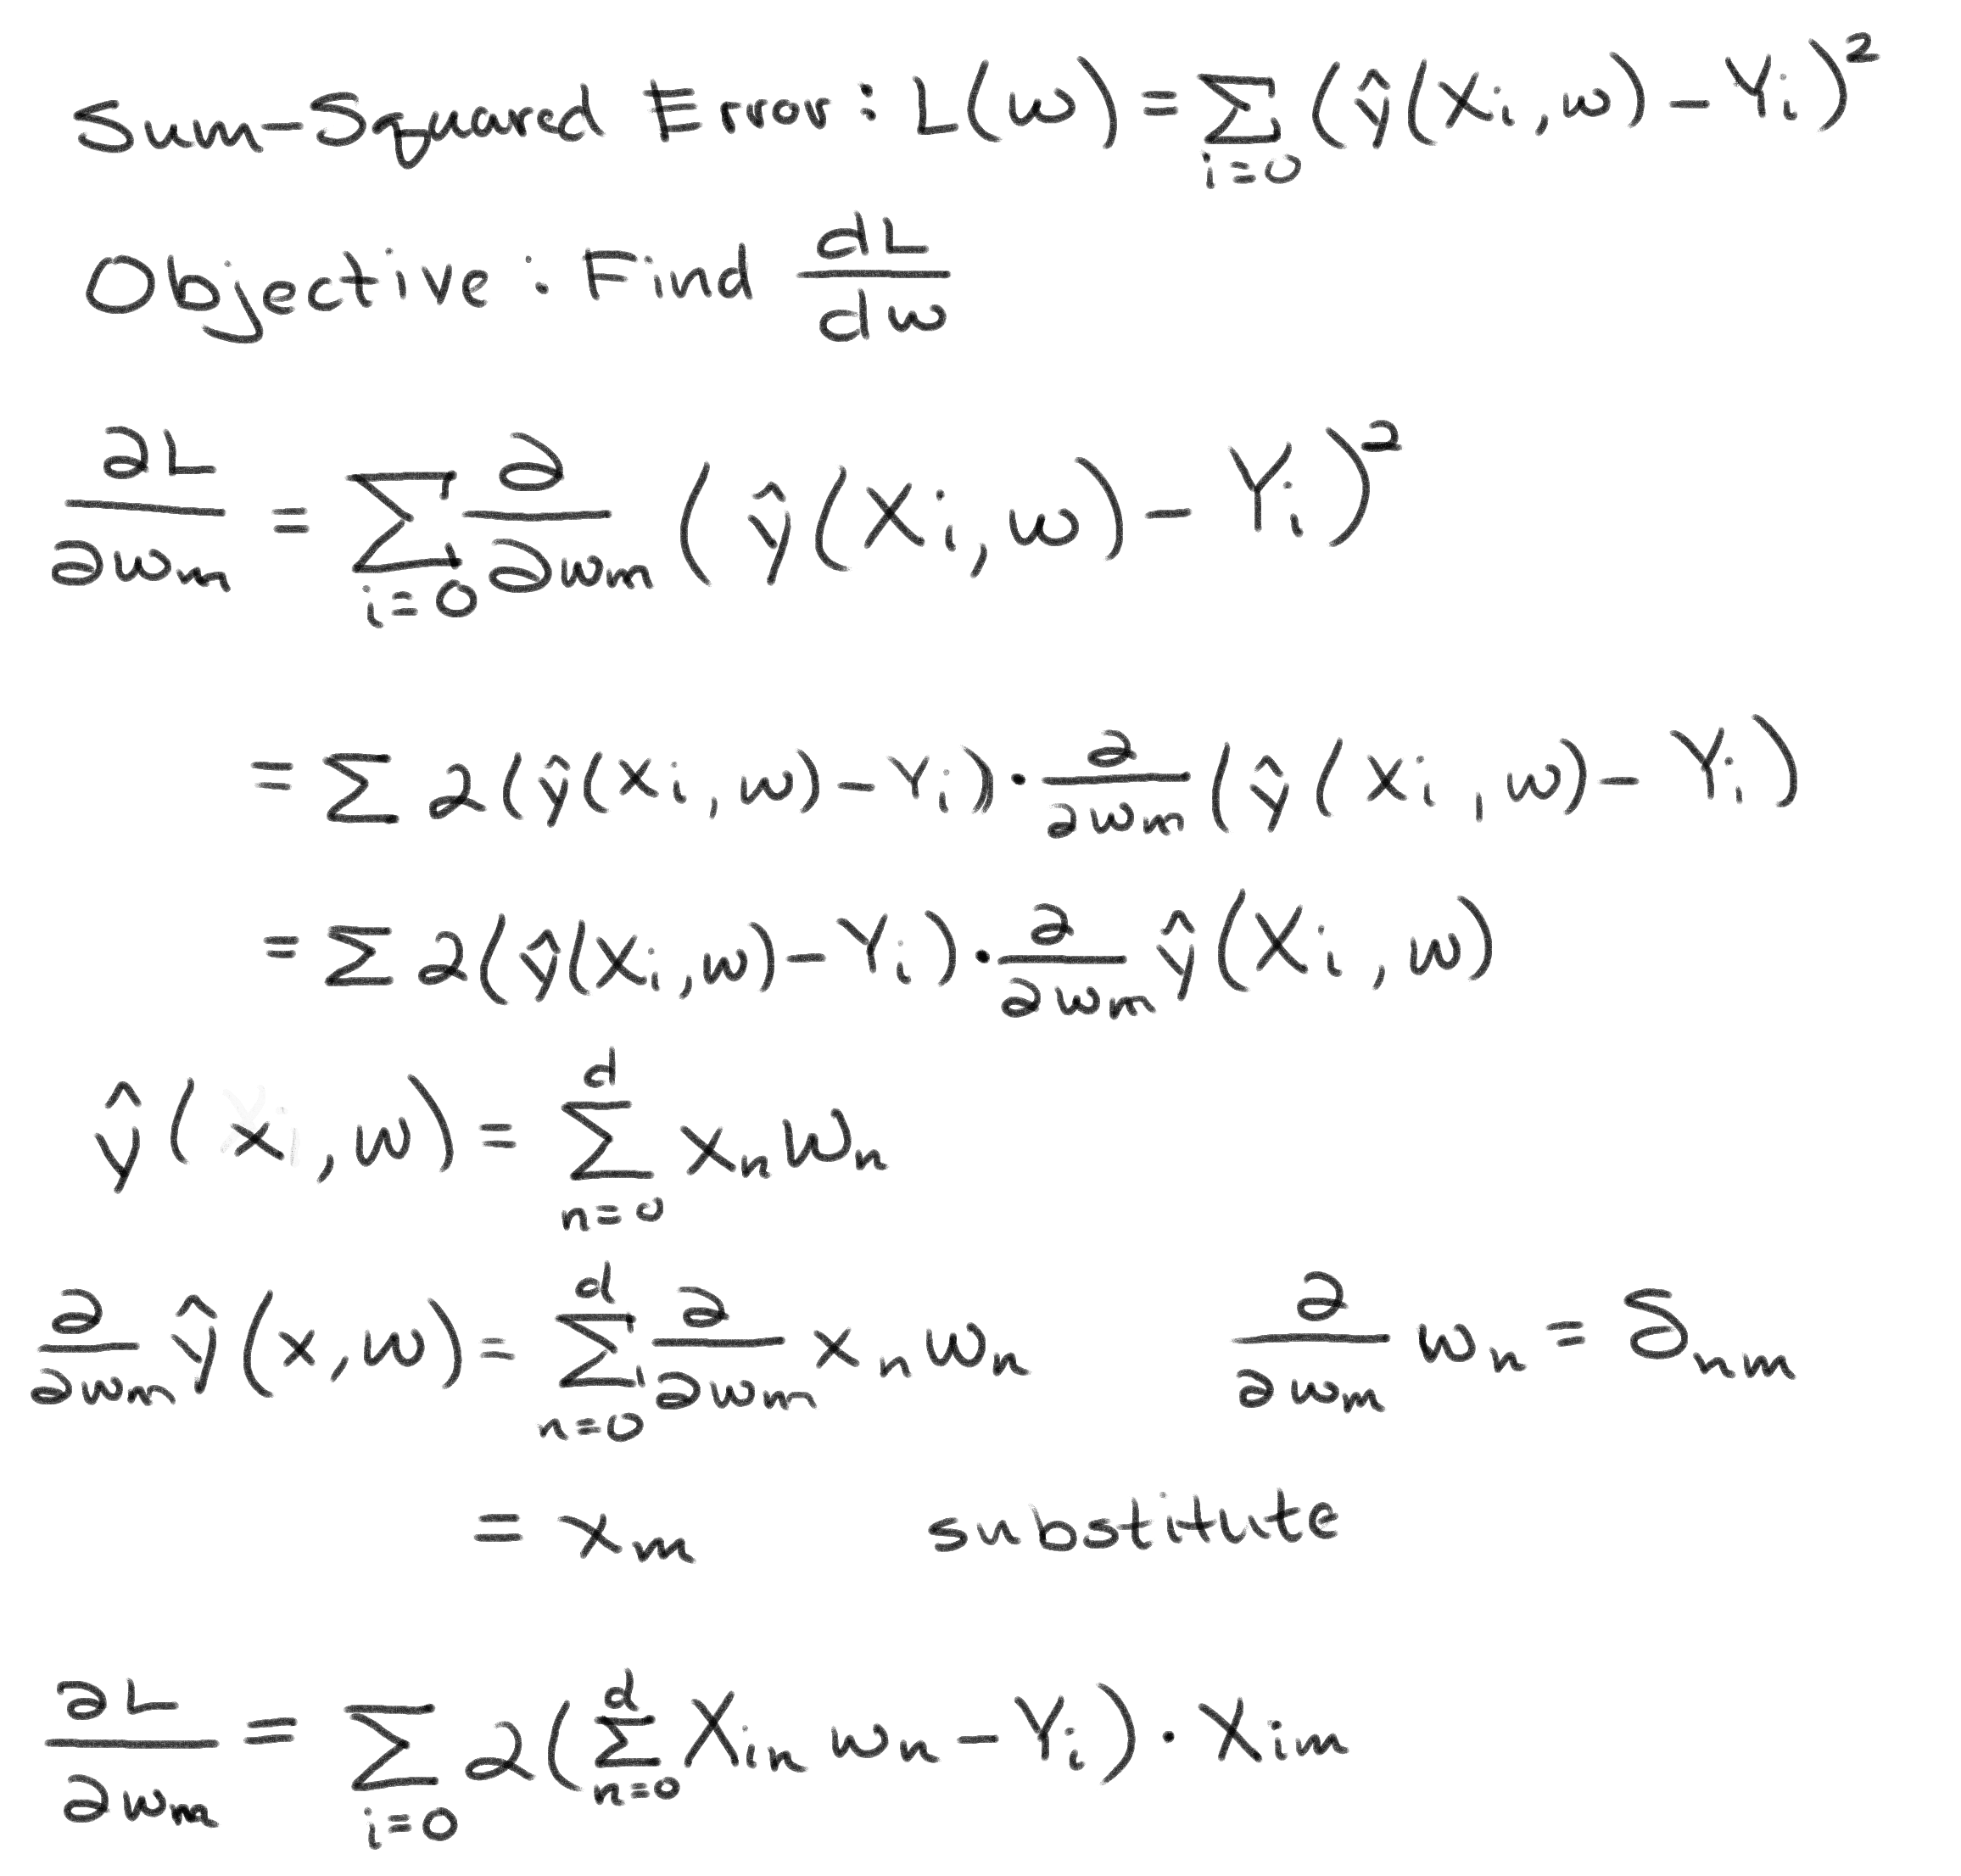 Sum-Squared Error: L(w) = Σ_{i=0} (ŷ(Xi,w) - Yi)²
Objective: Find dL/dw
∂L/∂wm = Σ_{i=0} ∂/∂wm (ŷ(Xi,w) - Yi)²
= Σ 2(ŷ(Xi,w) - Yi) · ∂/∂wm (ŷ(Xi,w) - Yi)
= Σ 2(ŷ(Xi,w) - Yi) · ∂/∂wm ŷ(Xi,w)
ŷ(x,w) = Σ_{n=0}^{d} xn wn
∂/∂wm ŷ(x,w) = Σ_{n=0}^{d} ∂/∂wm xn wn    ∂/∂wm wn = δnm
= xm    substitute
∂L/∂wm = Σ_{i=0} 2(Σ_{n=0}^{d} Xin wn - Yi) · Xim